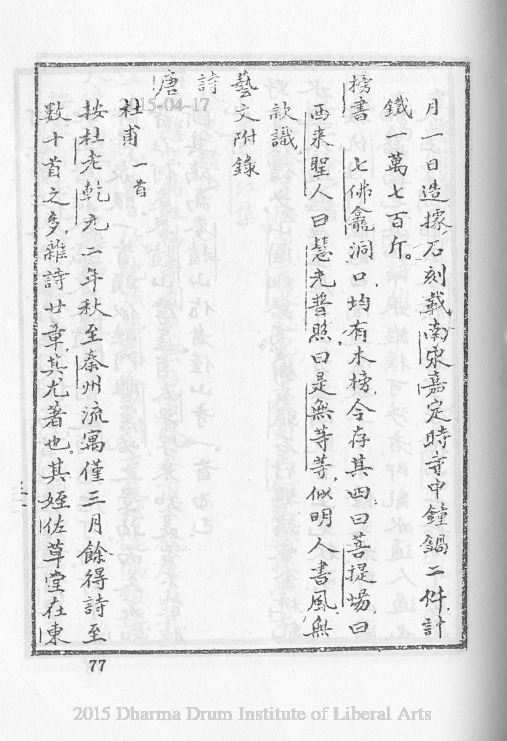 月一日造據石刻載南宋嘉定時 申鐘鍋二件計
鐵一萬七百斤。
榜書 七佛龕洞口，均有木榜，今存其四曰菩提場，曰
西来聖人曰慧光普照，曰是無等等，似明人書風無
欵識。
藝文附錄
詩
唐
杜甫 一首
按杜老乾元二年秋至秦州流寓僅三月餘得詩至
數十首之多，雜詩廿章，其尤著也。其姪佐草堂在東
77
15-04-17
2015 Dharma Drum Institute of Liberal Arts